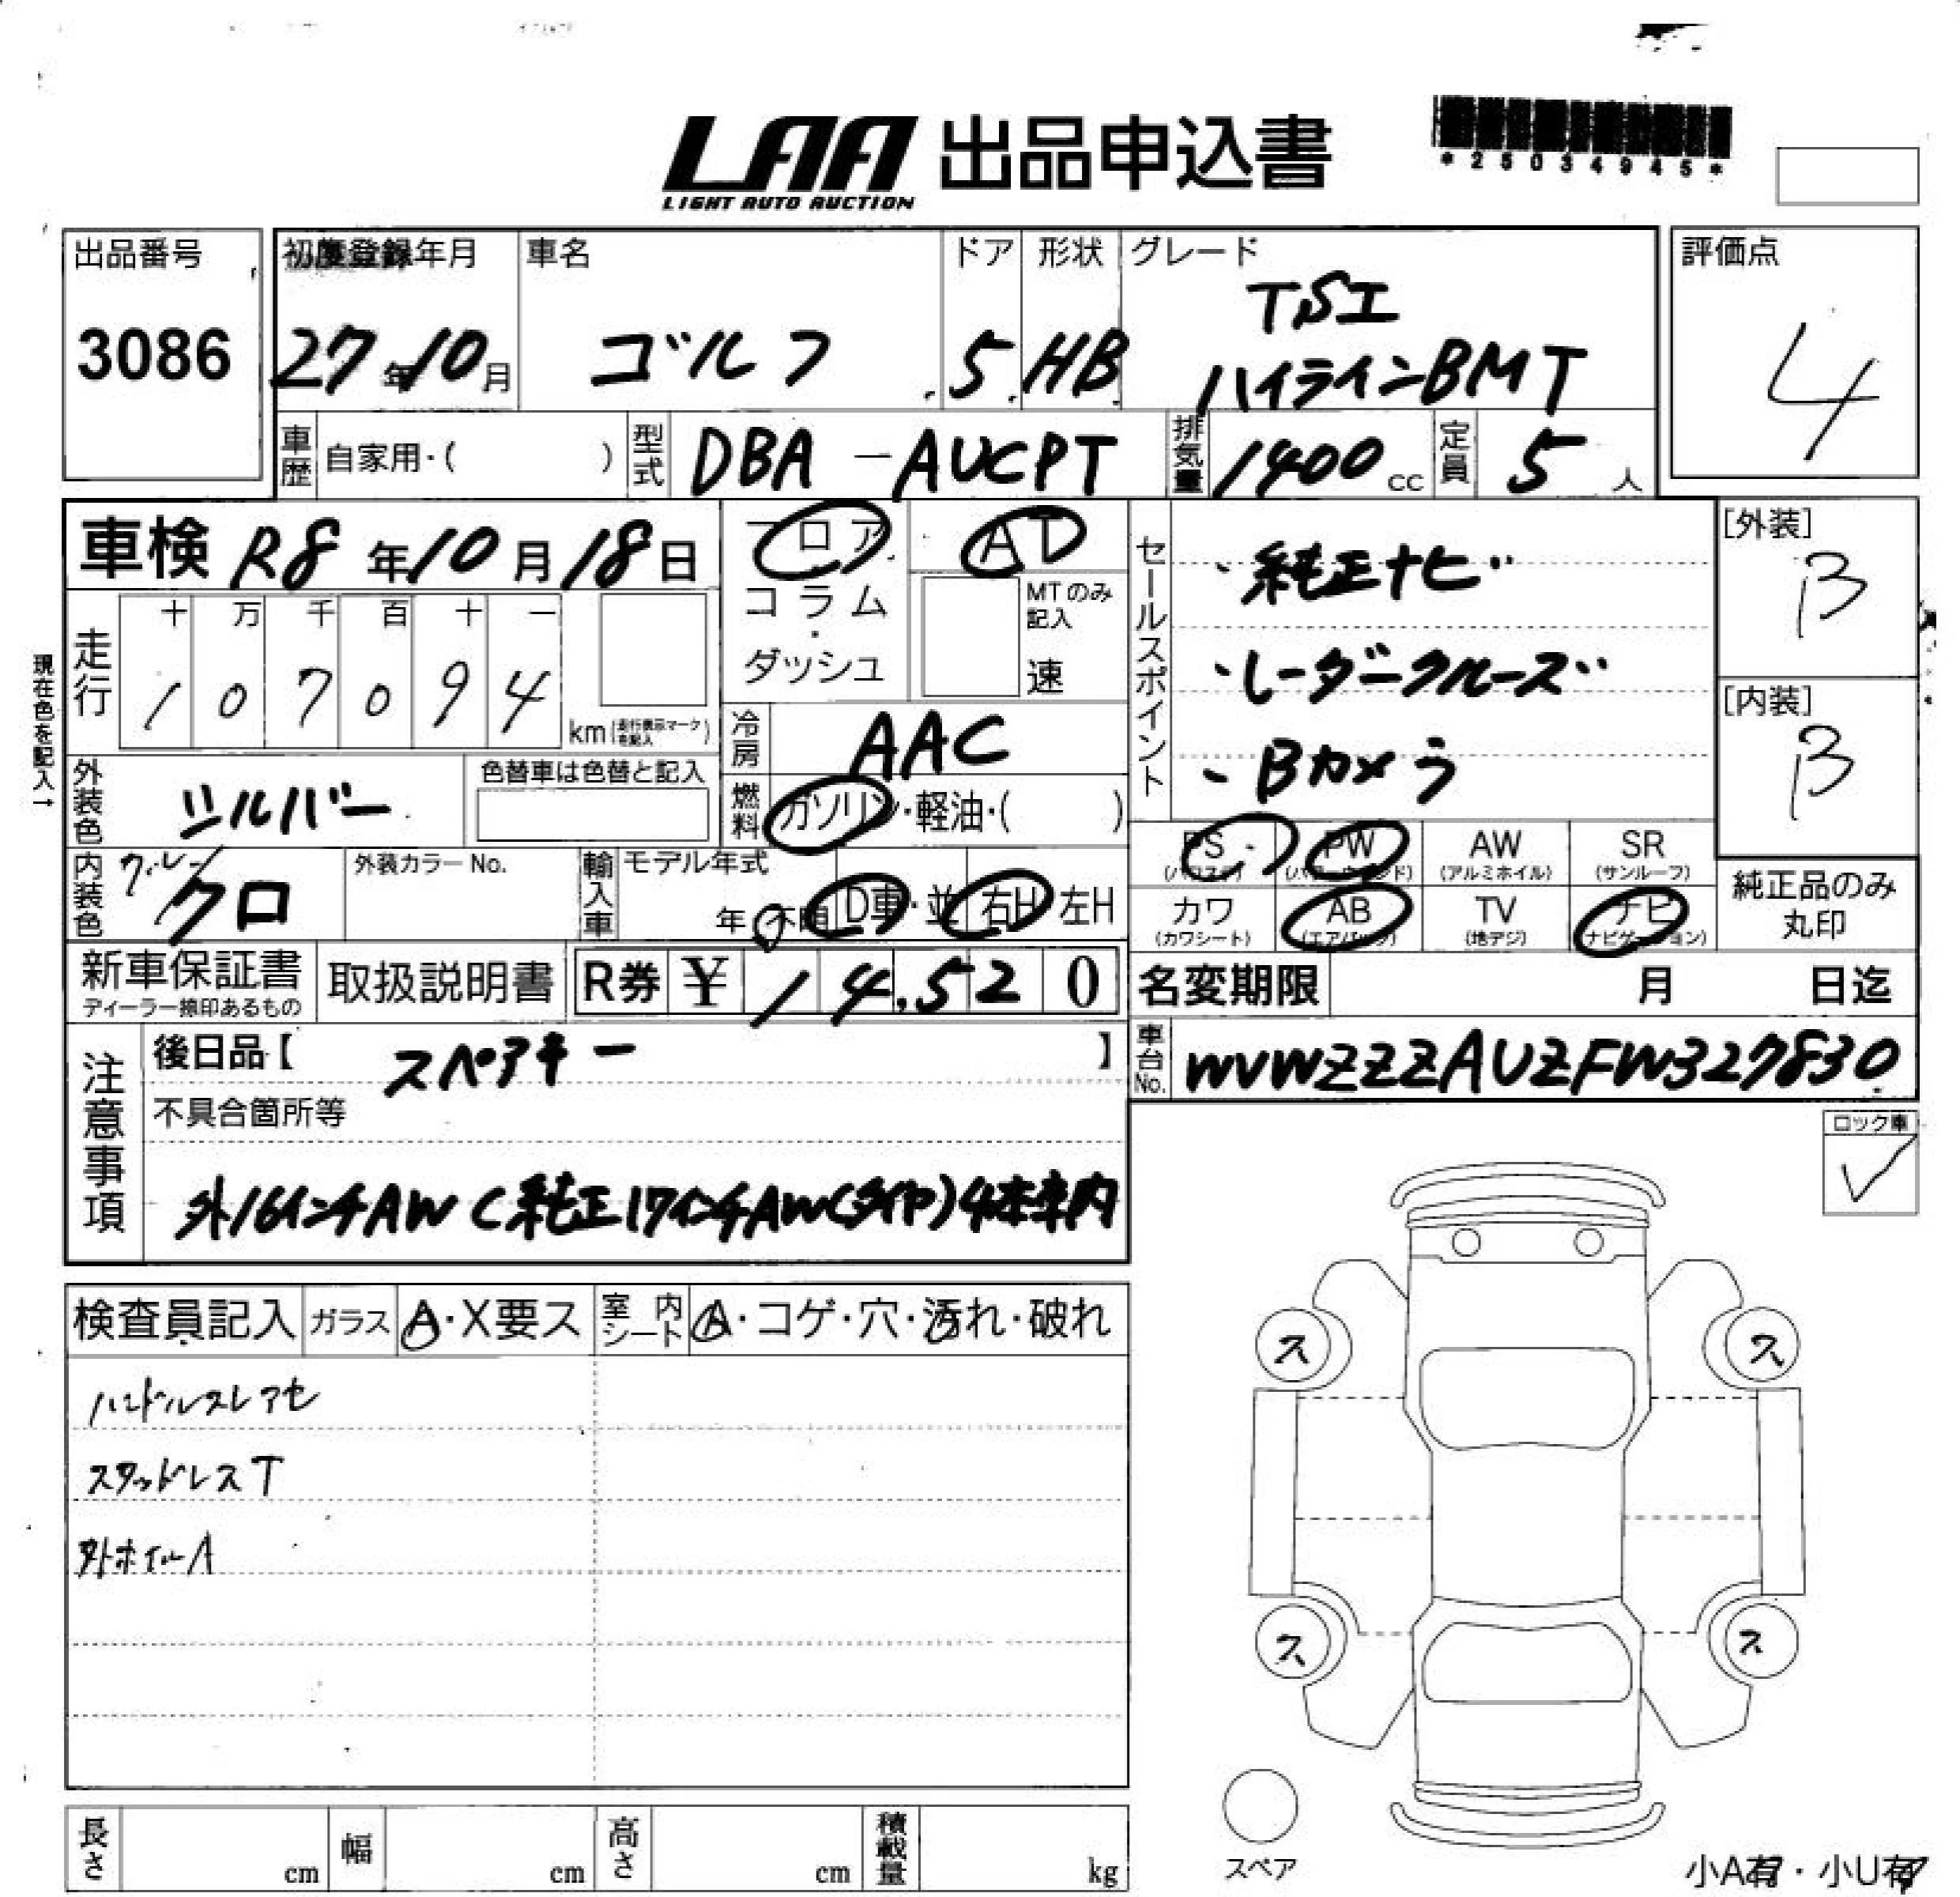 LAA 出品申込書
LIGHT AUTO AUCTION
*25034945*
出品番号
3086
初度登録年月
27年10月
車名
ゴルフ
ドア
5
形状
HB
グレード
TSI
ハイラインBMT
評価点
4
車歴 自家用・( )
型式 DBA-AUCPT
排気量 1400 cc
定員 5 人
車検 R8年10月18日
フロア
コラム
・
ダッシュ
AT
MTのみ記入
速
セールスポイント
・純正ナビ
・レーダークルーズ
・Bカメラ
[外装]
B
[内装]
B
現在色を記入→
走行
十 万 千 百 十 一
1 0 7 0 9 4
km(走行表示マークを記入)
冷房 AAC
燃料 ガソリン・軽油・( )
外装色 シルバー
色替車は色替と記入
内装色 グレー/クロ
外装カラーNo.
輸入車
モデル年式
年・不明
D車・並
右H 左H
PS (パワステ)
PW (パワーウィンド)
AW (アルミホイル)
SR (サンルーフ)
カワ (カワシート)
AB (エアバック)
TV (地デジ)
ナビ (ナビゲーション)
純正品のみ
丸印
新車保証書
ディーラー捺印あるもの
取扱説明書
R券 ¥ 14,520
名変期限 月 日迄
車台No. WVWZZZAUZFW327830
注意事項
後日品【 スペアキー 】
不具合箇所等
外16インチAW(純正17インチAW(タイヤ)4本車内
ロック車
✓
検査員記入
ガラス A・X要ス
室内シート A・コゲ・穴・汚れ・破れ
ハンドルスレアセ
スタッドレスT
外ホイルA
ス
ス
ス
ス
スペア
長さ cm
幅 cm
高さ cm
積載量 kg
小A有・小U有